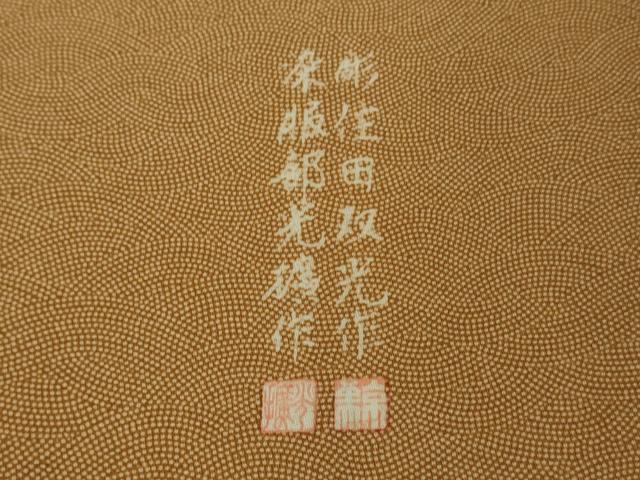 彫住田双光作
染服部光礦作